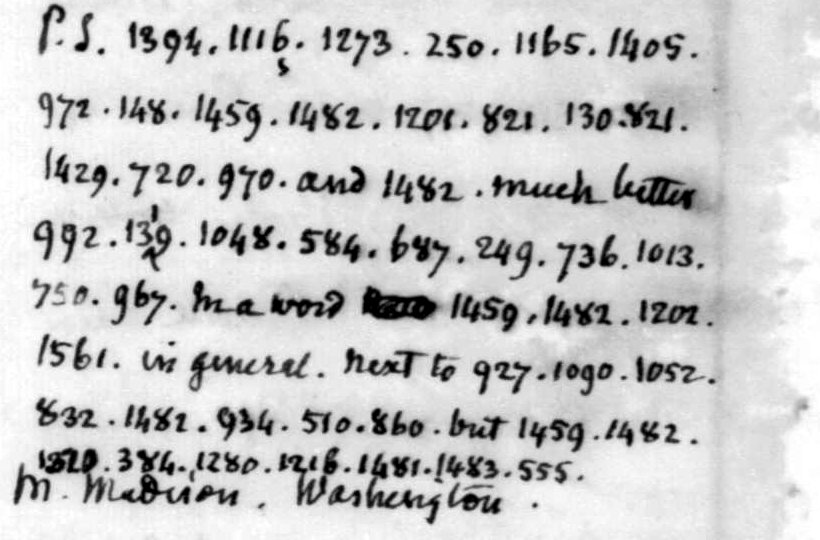 P.S. 1394. 1116. 1273. 250. 1165. 1405.
972. 148. 1459. 1482. 1201. 821. 130. 821.
1429. 720. 970. and 1482. much better
992. 139. 1048. 584. 687. 249. 736. 1013.
750. 967. In a word 1459. 1482. 1202.
1561. in general. next to 927. 1090. 1052.
832. 1482. 934. 510. 860. but 1459. 1482.
384. 1280. 1216. 1481. 1483. 555.
M. Madison. Washington.